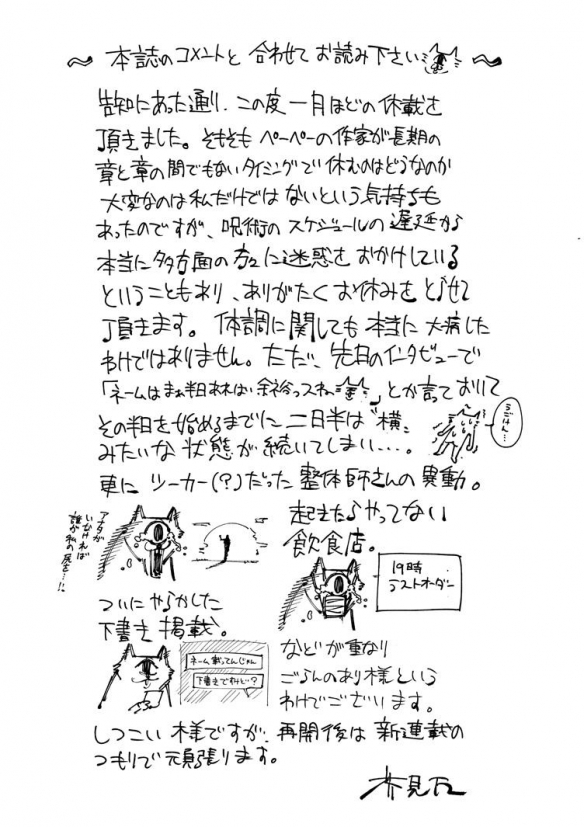 〜 本誌のコメントと合わせてお読み下さい 〜
告知にあった通り、この度一月ほどの休載を
頂きました。そもそもペーペーの作家が長期の
章と章の間でもないタイミングで休むのはどうなのか
大変なのは私だけではないという気持ちも
あったのですが、呪術のスケジュールの遅延から
本当に多方面の方々に迷惑をおかけしている
ということもあり、ありがたくお休みをとらせて
頂きます。体調に関しても本当に大病した
わけではありません。ただ、先日のインタビューで
「ネームはまぁ半日あれば余裕っスね」とか言っておいて
その半日を始めるまでに二日半は〝横〟
みたいな状態が続いてしまい…。
うごけん…
更にツーカー(?)だった整体師さんの異動。
アナタが
いなければ
誰が私の尻を…!?
起きたらやってない
飲食店。
19時
ラストオーダー
ついにやらかした
下書き掲載。
ネーム載ってんじゃん
下書きですけど?
などが重なり
ごらんのあり様という
わけでございます。
しつこい様ですが、再開後は新連載の
つもりで頑張ります。
芥見下々